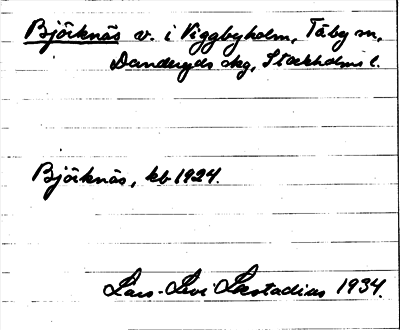 Björknäs v. i Viggbyholm, Täby sn,
Danderyds skg, Stockholms l.
Björknäs, kb 1924.
Lars-Levi Læstadius 1934.